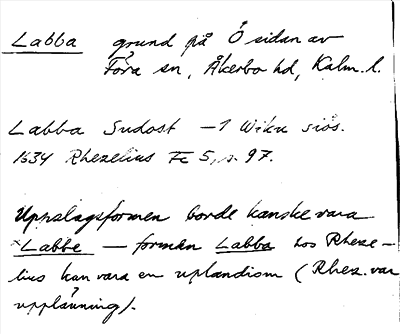 Labba grund på Ö sidan av
Föra sn, Åkerbo hd, Kalm. l.
Labba Sudost – 1 Wiku siös.
1634 Rhezelius Fc 5, s. 97.
Uppslagsformen borde kanske vara
*Labbe – formen Labba hos Rheze-
lius kan vara en uplandism (Rhez. var
upplänning).